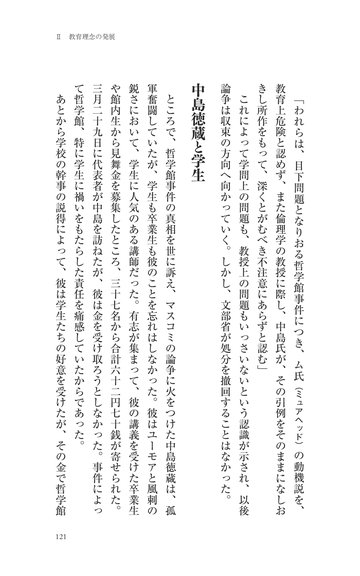 Ⅱ 教育理念の発展
「われらは、目下問題となりおる哲学館事件につき、ム氏（ミュアヘッド）の動機説を、
教育上危険と認めず、また倫理学の教授に際し、中島氏が、その引例をそのままになしお
きし所作をもって、深くとがむべき不注意にあらずと認む」
これによって学問上の問題も、教授上の問題もいっさいないという認識が示され、以後
論争は収束の方向へ向かっていく。しかし、文部省が処分を撤回することはなかった。
中島徳蔵と学生
ところで、哲学館事件の真相を世に訴え、マスコミの論争に火をつけた中島徳蔵は、孤
軍奮闘していたが、学生も卒業生も彼のことを忘れはしなかった。彼はユーモアと風刺の
鋭さにおいて、学生に人気のある講師だった。有志が集まって、彼の講義を受けた卒業生
や館内生から見舞金を募集したところ、三十七名から合計六十二円七十銭が寄せられた。
三月二十九日に代表者が中島を訪ねたが、彼は金を受け取ろうとしなかった。事件によっ
て哲学館、特に学生に禍いをもたらした責任を痛感していたからであった。
あとから学校の幹事の説得によって、彼は学生たちの好意を受けたが、その金で哲学館
121